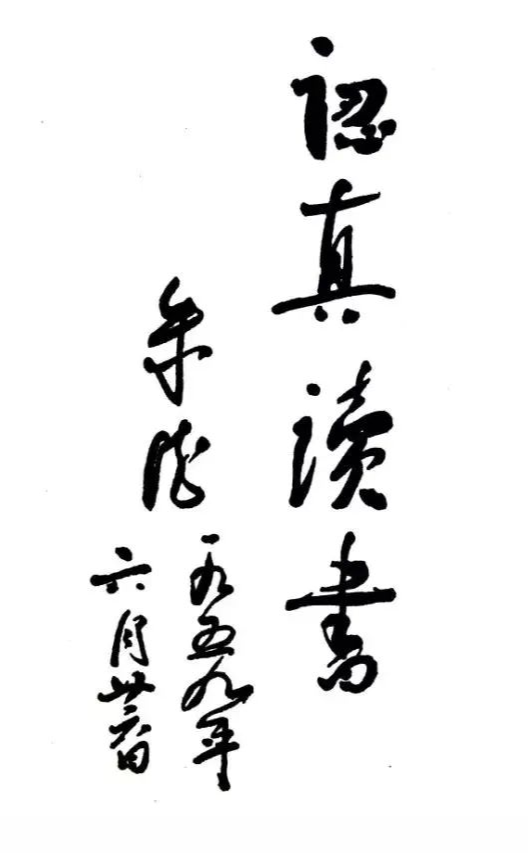 認真讀書
朱德
一九五九年
六月